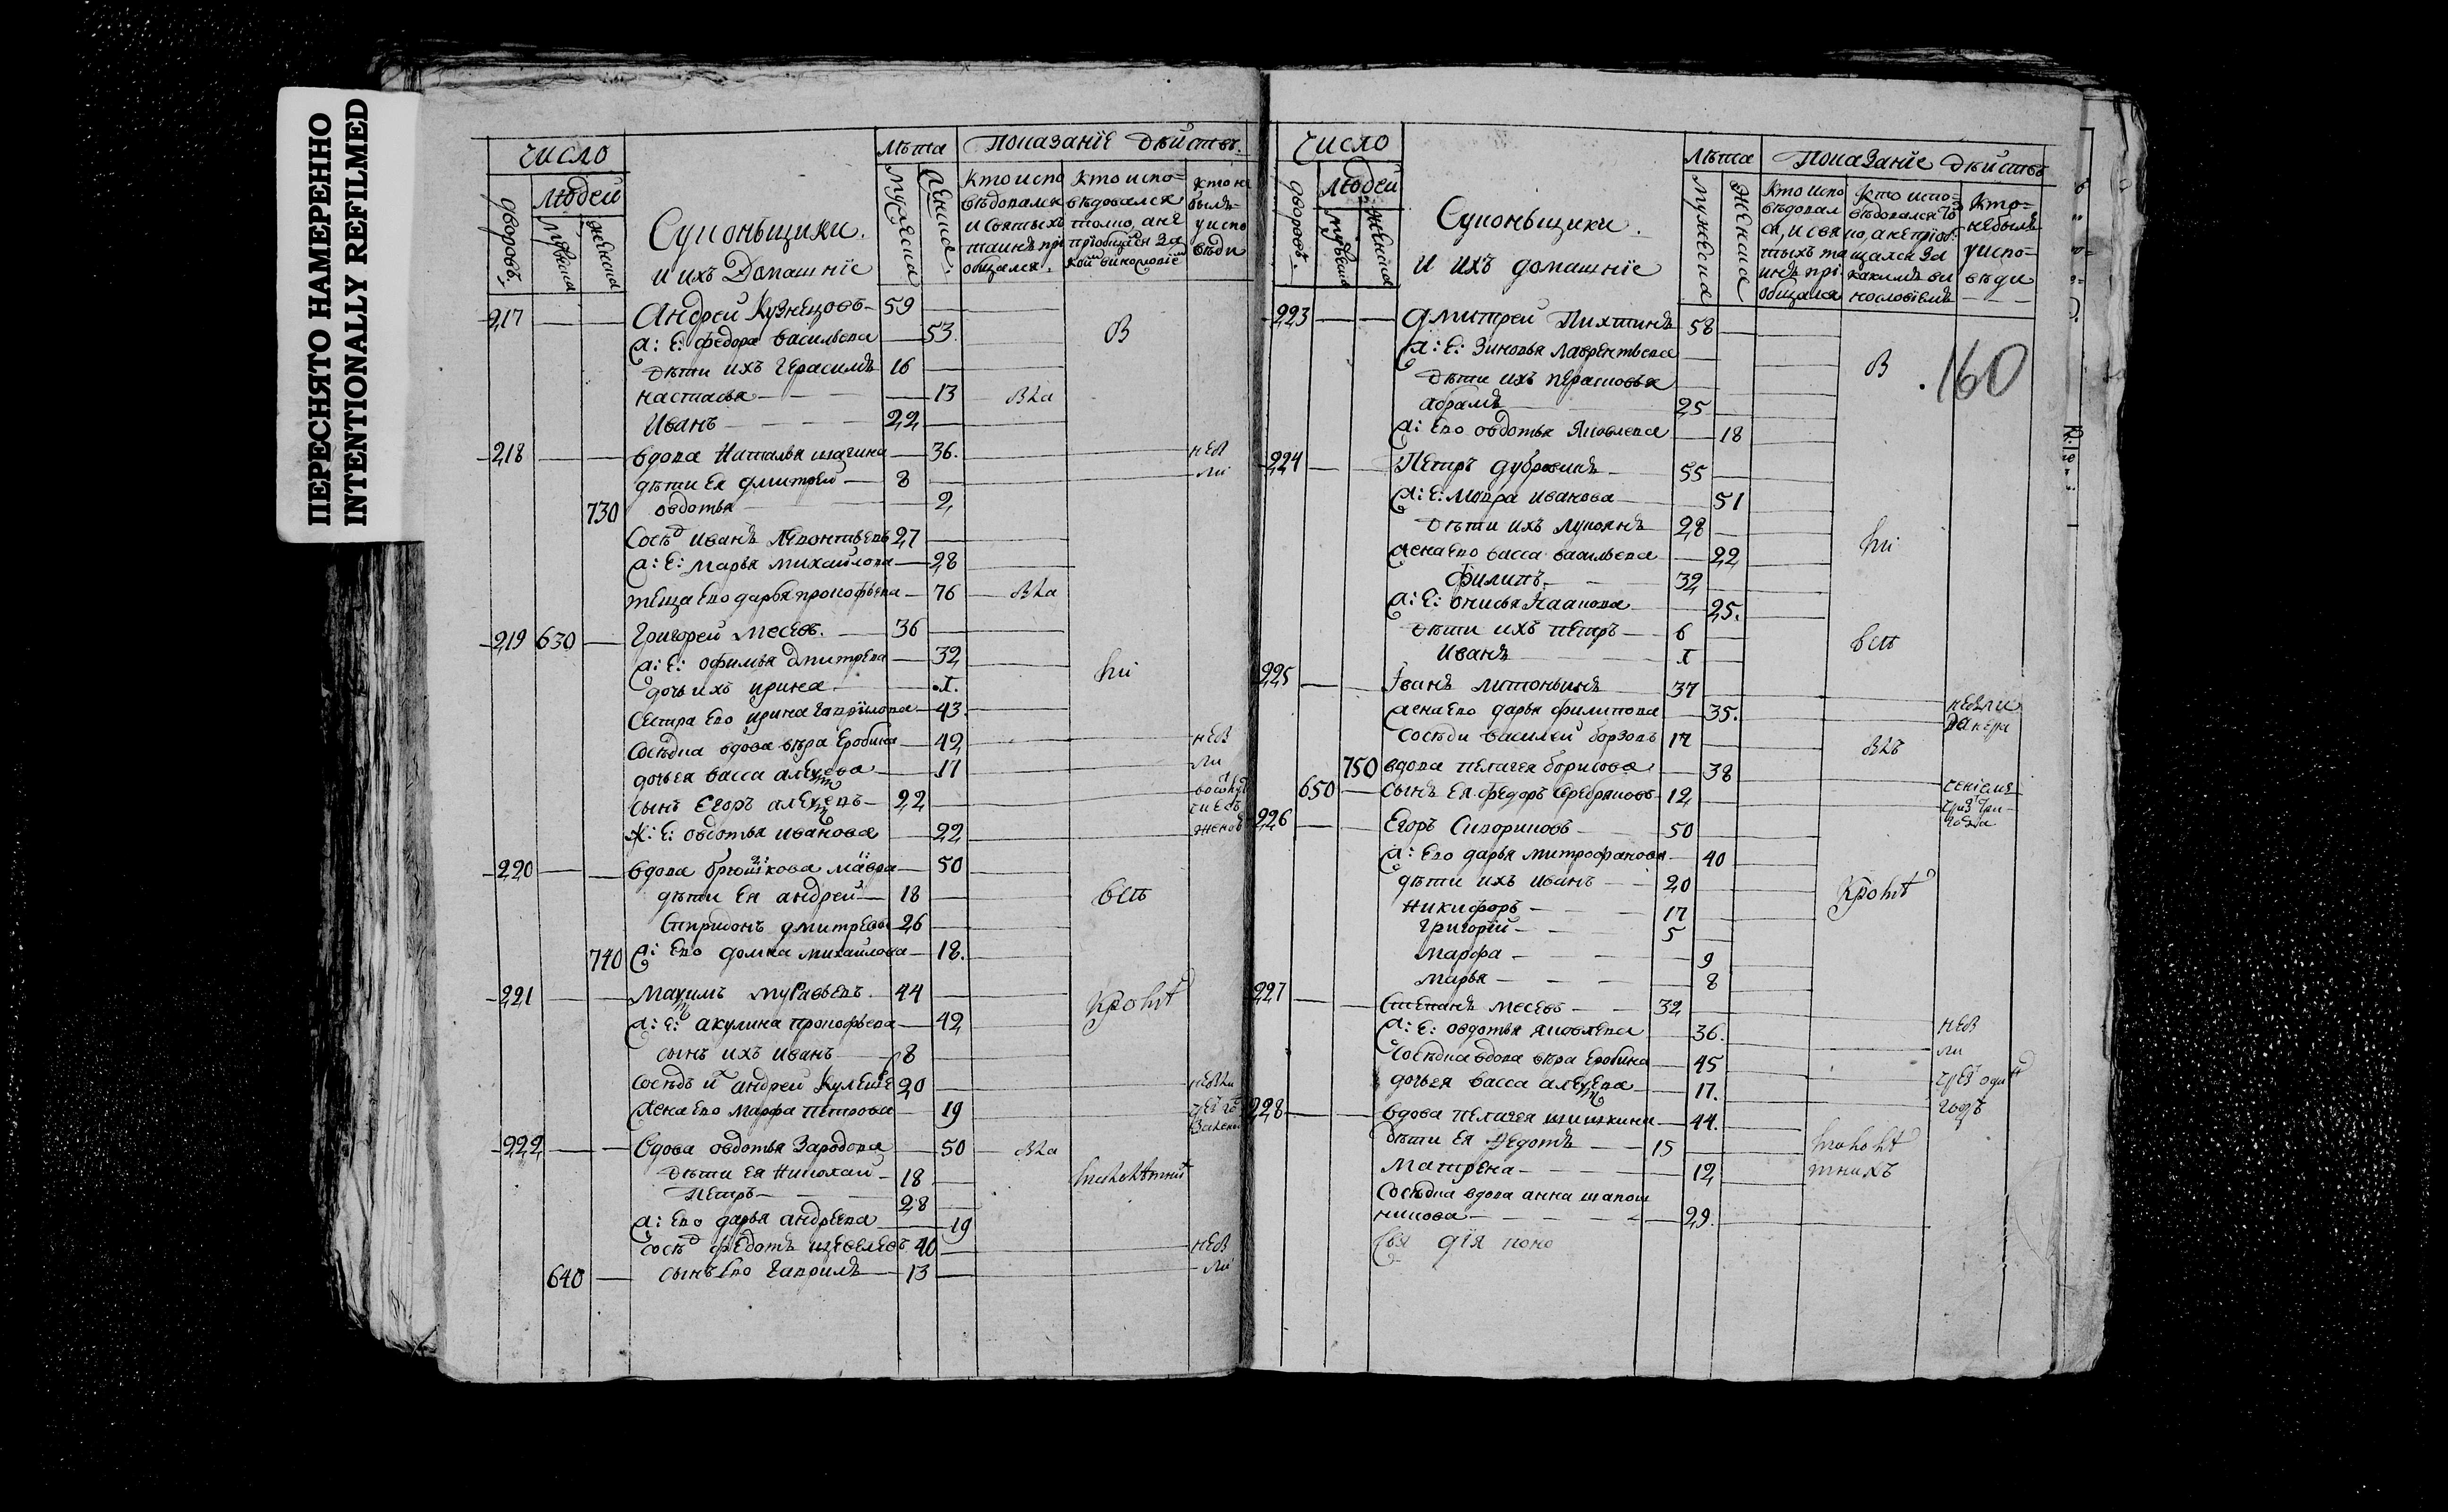 ПЕРЕСНЯТО НАМЕРЕННО
INTENTIONALLY REFILMED
число
людей
дворовъ
мужеска
женска
Супоньщики.
и ихъ Домашнїе
лѣта
мужеска
женска
показанїе дѣйствъ
Кто испо
вѣдовался
и святыхъ
таинъ прі
общался.
Кто испо=
вѣдовался
толко, а не
пріобщен за
кои винословїе
кто не
былъ
у испо
вѣди
217 Андрей Кузнецовъ 59
ж: е: федора васильева 53.
дѣти ихъ герасимъ 16
настасья 13
Иванъ 22
218 вдова Наталья шагина 36.
дѣти ея дмитрей 8
730 овдотья 2
Сосѣд иванъ Леонтьевъ 27
ж: е: марья михайлова 28
теща ево дарья прокофьева 76
219 630 Григорей месевъ. 36
ж: е: офимья дмитрева 32
дочь ихъ ирина 1.
Сестра ево ирина гаврїлова 43.
Сосѣдка вдова вѣра Еробина 42
дочь ея васса алеѯева 17
сынъ Егоръ алеѯевъ 22
ж: е: овдотья иванова 22
220 вдова брюшкова мавра 50
дѣти ея андрей 18
Спиридонъ дмитревъ 26
740 ж: ево домна михайлова 18.
221 Маѯимъ муравьевъ 44
ж: е: акулина прокофьева 42
сынъ ихъ иванъ 8
сосѣдъ и андрей Кулеше 20
жена ево марфа петрова 19
222 вдова овдотья Зародова 50
дѣти ея Николай 18
Петръ 28
ж: ево дарья андреева 19
сосѣд федотъ щевелевъ 40
640 сынъ ево гаврилъ 13
число
людей
дворовъ.
мужеска
женска
Супоньщики.
и ихъ домашнїе
лѣта
мужеска
женска
показанїе дѣйствъ
Кто испо
вѣдовал
ся, и свя
тыхъ та
инъ прі.
общался
Кто испо=
вѣдовался то
ко, а не пріоб:
щался за
какимъ ви
нословїемъ
Кто=
не былъ
у испо-
вѣди
160
223 дмитрей Пихтинъ 58
ж: е: Зиновья лаврентьева
дѣти ихъ перасковья
абрамъ 25
ж: ево овдотья яковлева 18
224 Петръ дубровинъ 55
ж: е: мавра иванова 51
дѣти ихъ лукоянъ 28
жена ево васса васильева 22
филипъ 32
ж: е: онисья 25.
дѣти ихъ петръ 6
иванъ 1
225 Іванъ литонинъ 37
жена ево дарья филипова 35.
Сосѣди василей борзовъ 17
750 вдова пелагея борисова 38
650 сынъ ея федоръ Серебряковъ 12
226 Егоръ Сидориновъ 50
ж: ево дарья митрофанова 40
дѣти ихъ иванъ 20
никифоръ 17
григорїй 5
марфа 9
марья 8
227 Степанъ месевъ 32
ж: е: овдотья яковлева 36.
Сосѣдка вдова вѣра Еробина 45
дочь ея васса алеѯева 17.
228 вдова пелагея шишкина 44.
дѣти ея федотъ 15
матрена 12
Сосѣдка вдова анна шапош
никова 29.